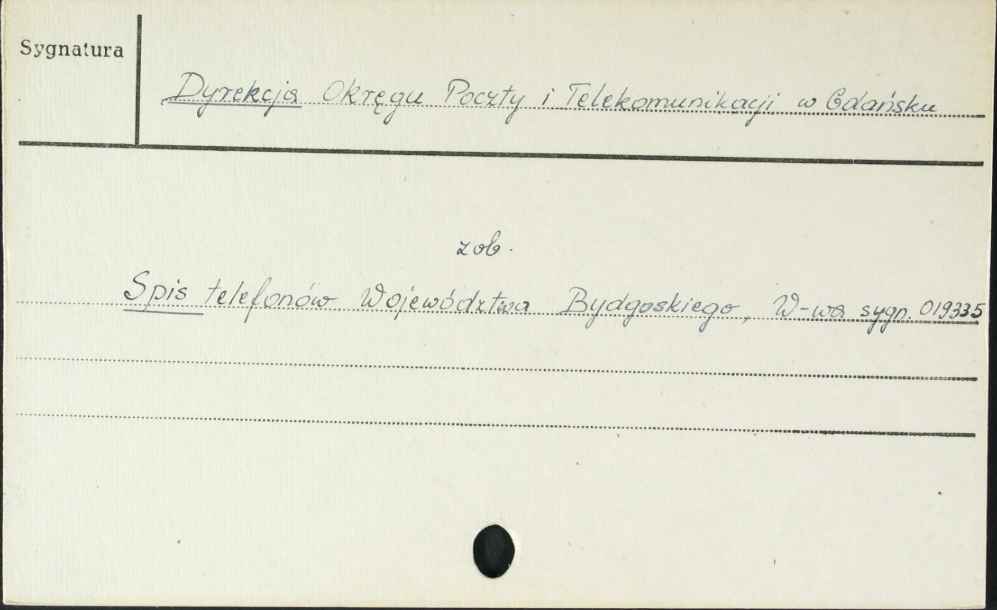 Sygnatura
Dyrekcja Okręgu Poczty i Telekomunikacji w Gdańsku
zob.
Spis telefonów Województwa Bydgoskiego, W-wa sygn. 019335